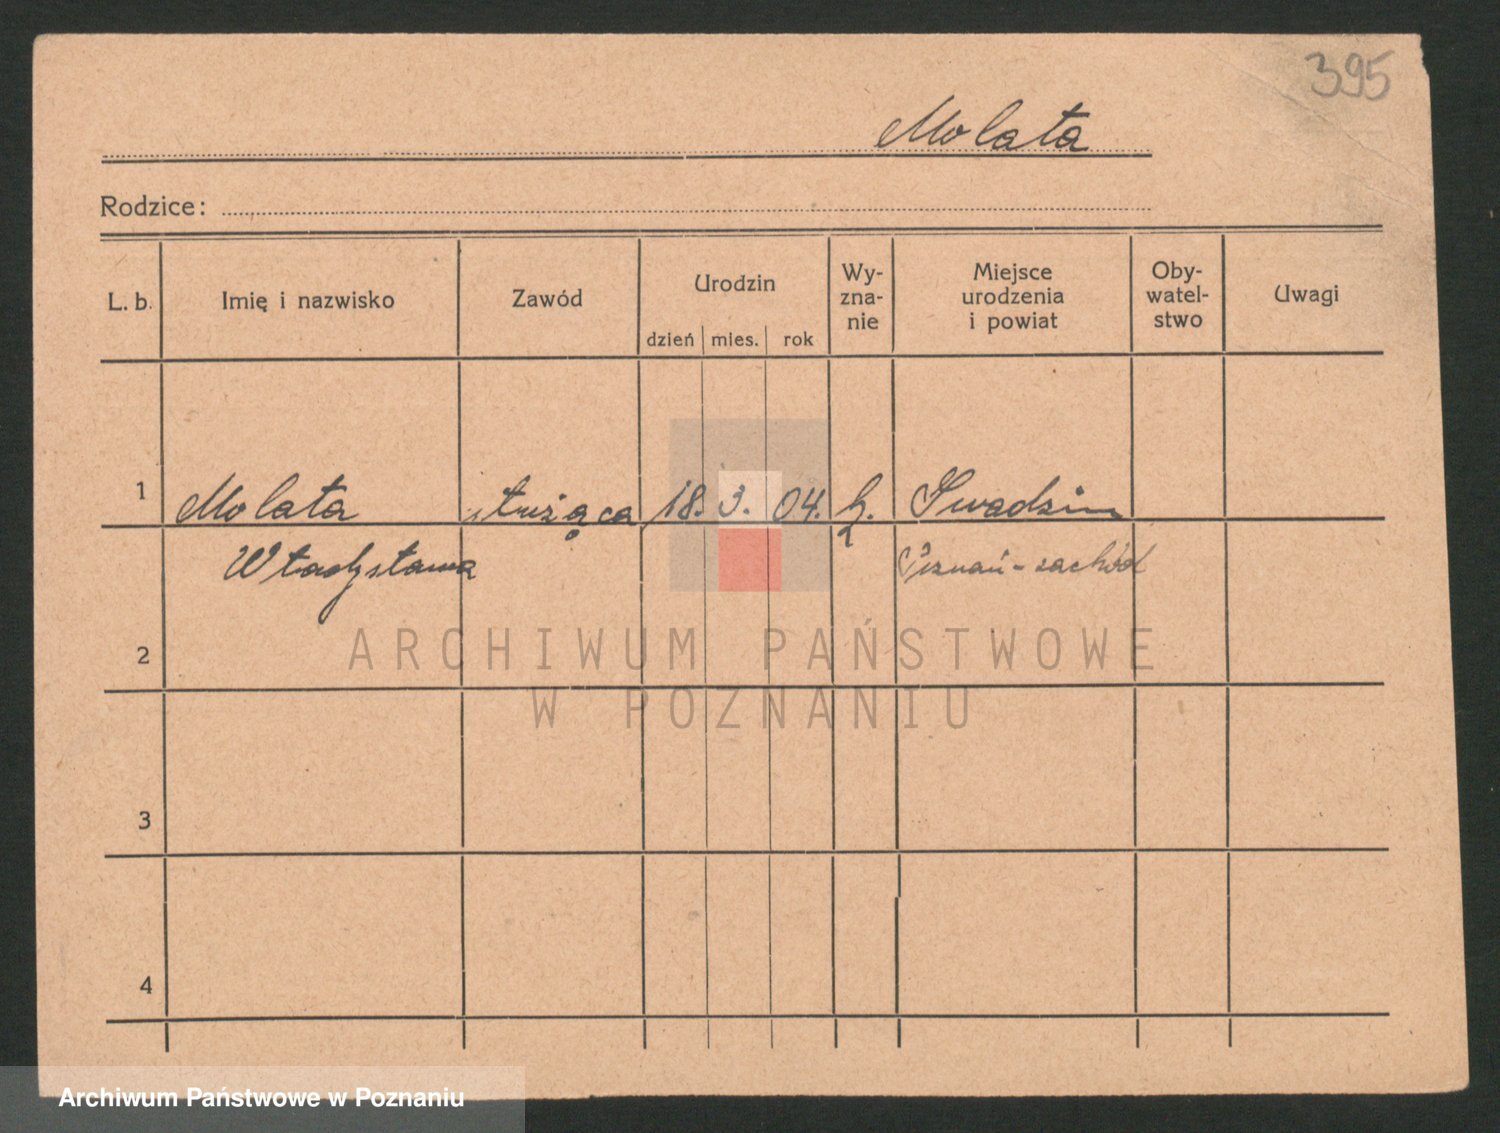 395
Molata
Rodzice:
L. b. Imię i nazwisko Zawód Urodzin dzień mies. rok Wy-zna-nie Miejsce urodzenia i powiat Oby-watel-stwo Uwagi
1 Molata służąca 18. 3. 04. Swadzim
Władysława Poznań-zachód
2
3
4
ARCHIWUM PAŃSTWOWE
W POZNANIU
Archiwum Państwowe w Poznaniu